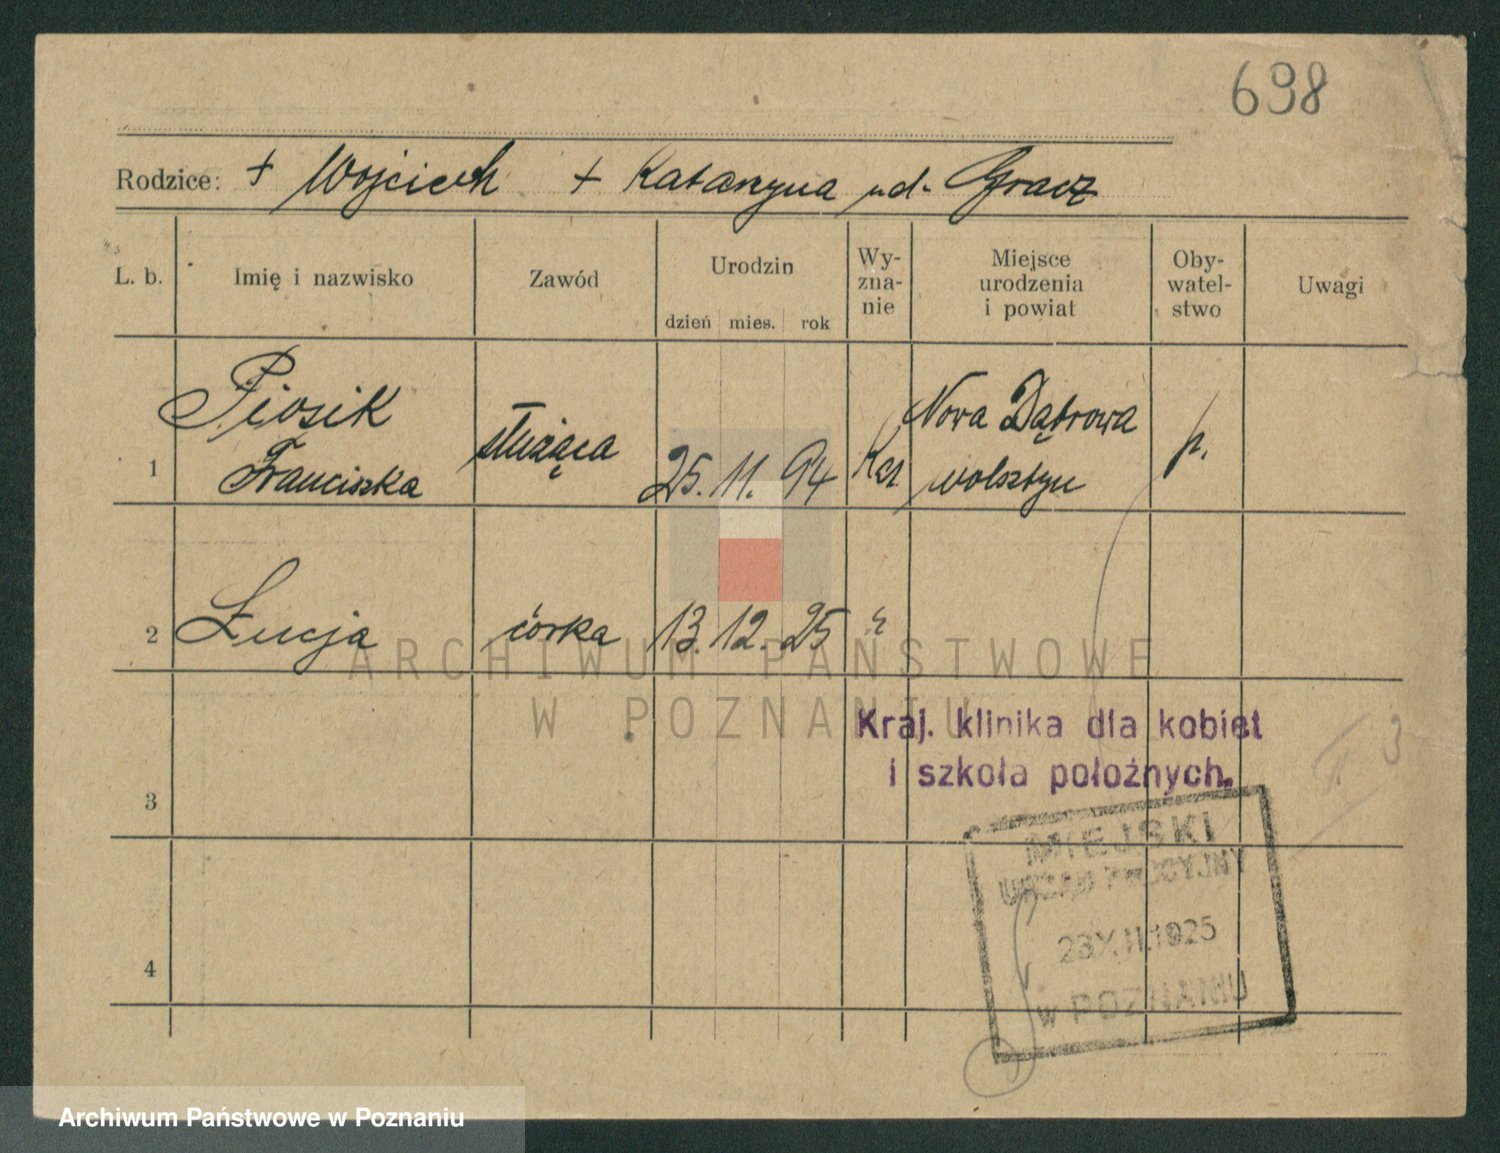 698
Rodzice: + Wojciech + Katarzyna ud. Gracz
L. b. Imię i nazwisko Zawód Urodzin dzień mies. rok Wy-zna-nie Miejsce urodzenia i powiat Oby-watel-stwo Uwagi
Piosik
1 Franciszka służąca 25. 11. 94 Kat Nova Dąbrowa wolsztyn p.
2 Łucja córka 13. 12. 25 "
ARCHIWUM PAŃSTWOWE
W POZNANIU
Kraj. klinika dla kobiet
i szkoła położnych.
3
MIEJSKI
URZĄD POLICYJNY
23 XII. 1925
w POZNANIU
4
Archiwum Państwowe w Poznaniu